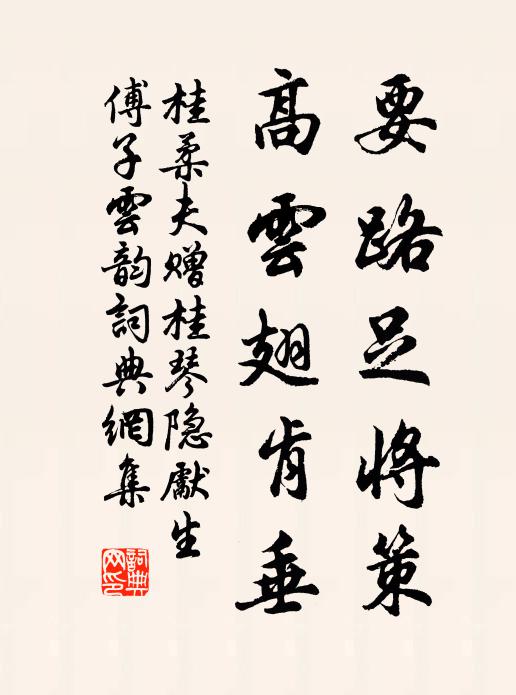 要路足將策
高雲翅肯垂
桂柔夫贈桂琴隐獻生
傅子雲韵詞典網集
詞典网印